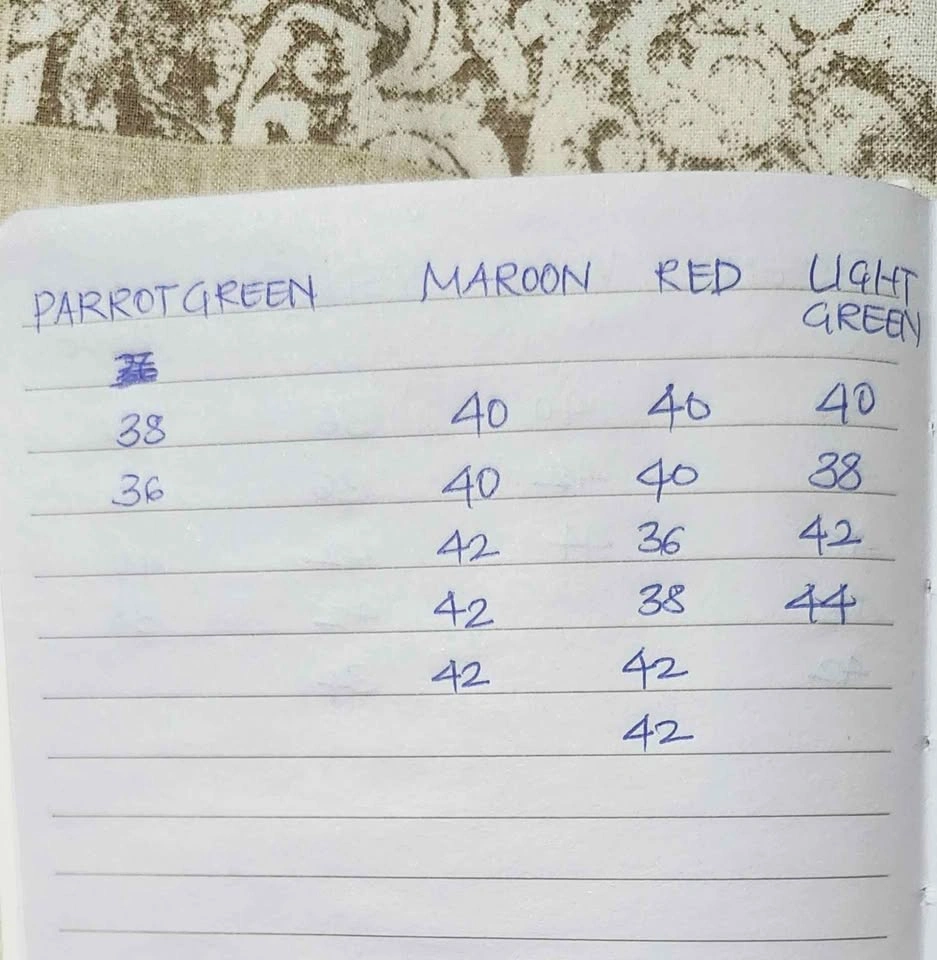 PARROT GREEN MAROON RED LIGHT GREEN
38 40 40 40
36 40 40 38
42 36 42
42 38 44
42 42
42